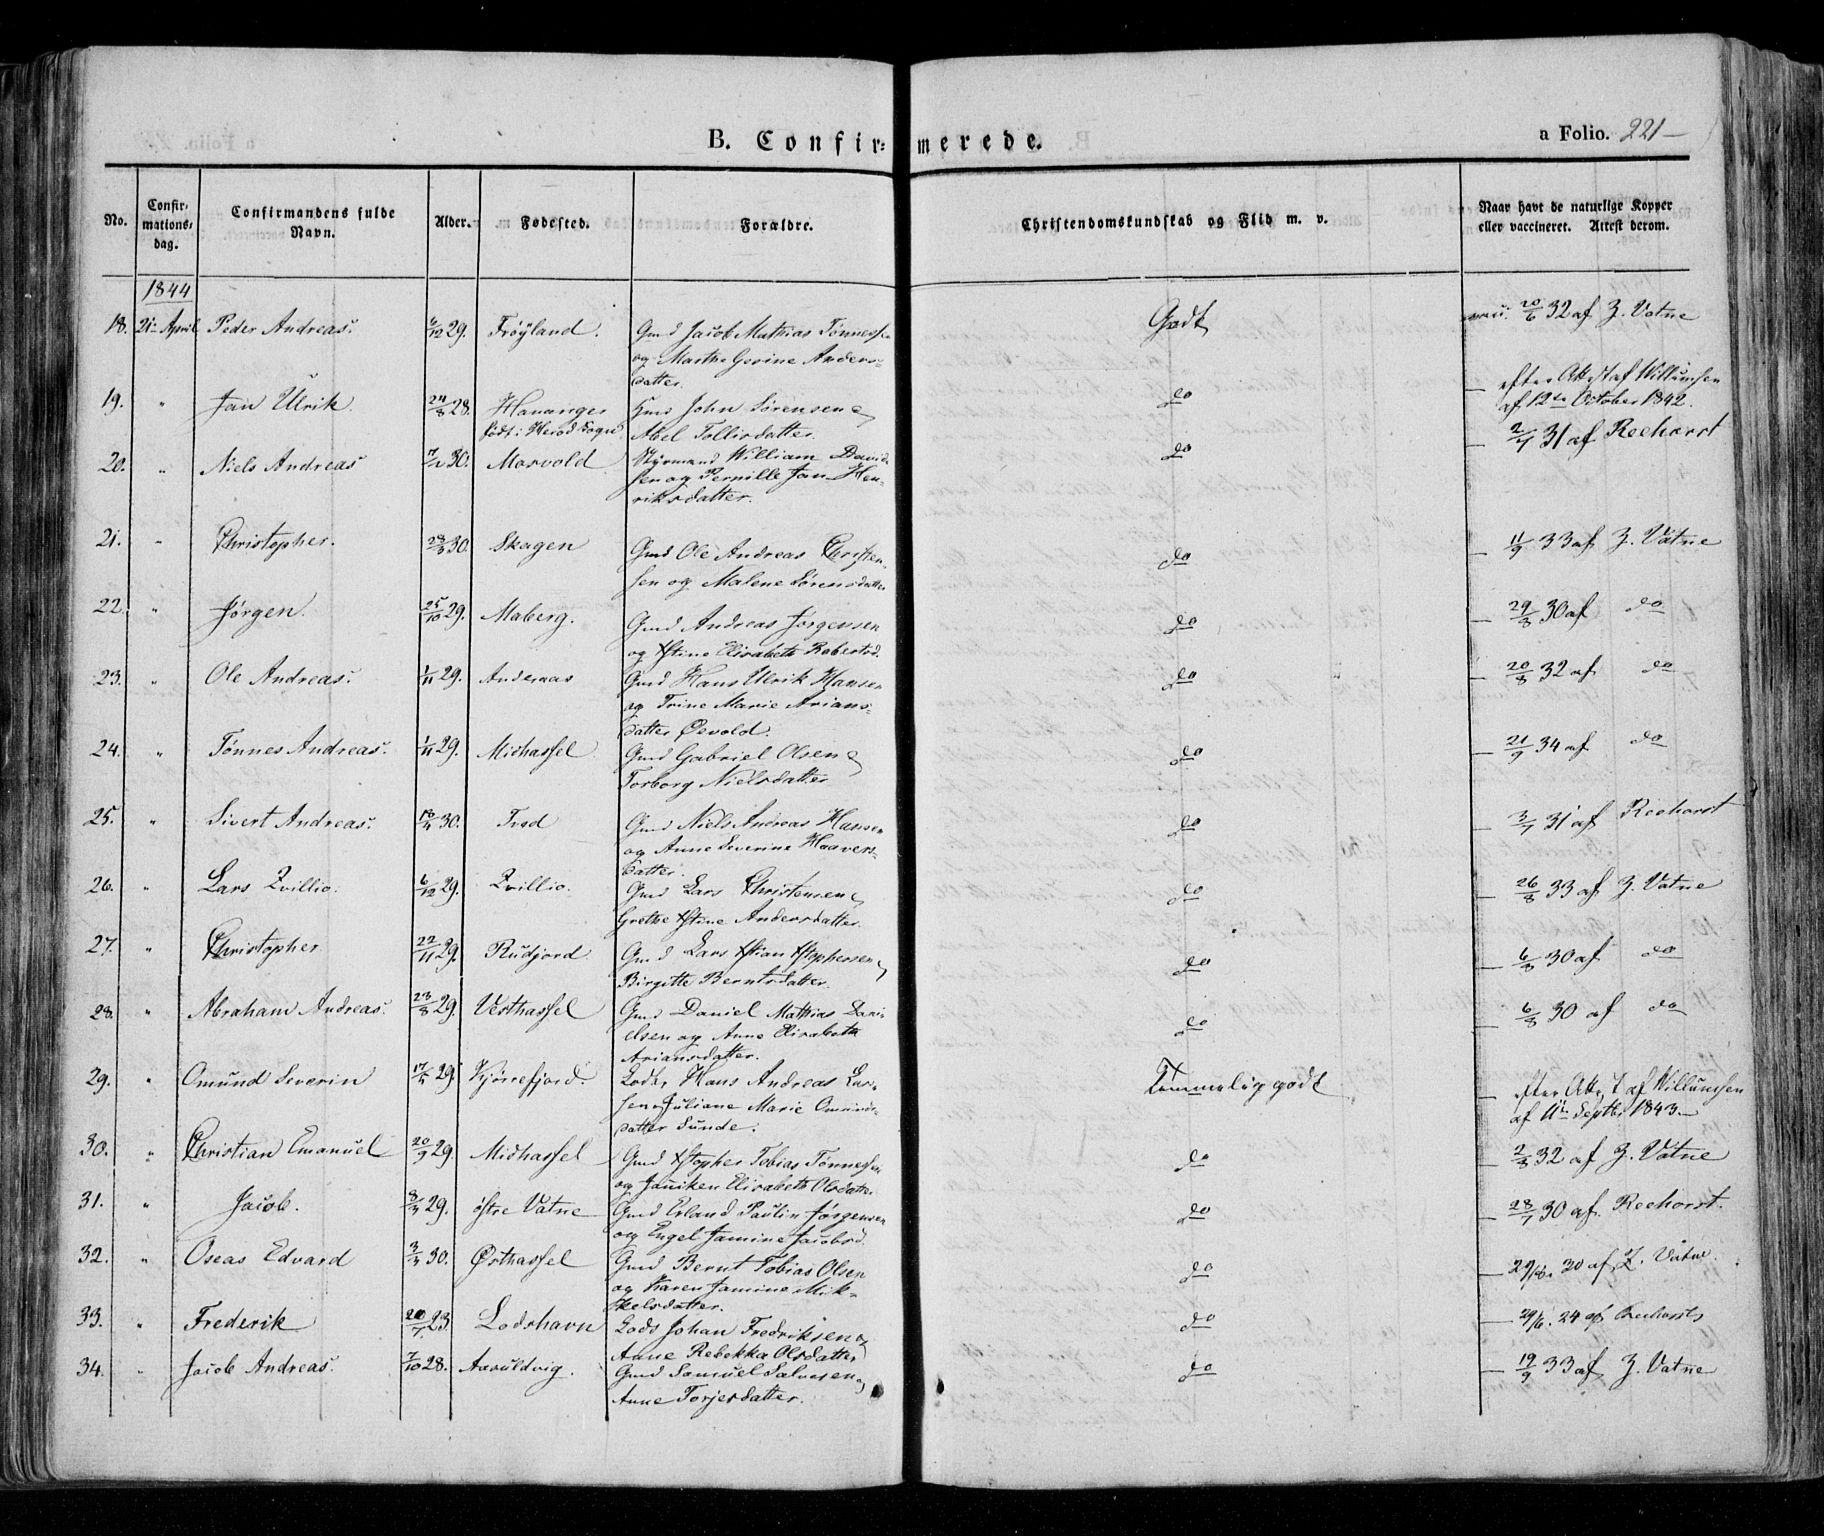 B. Confirmerede. a Folio. 221
No. Confirmationsdag. Confirmandens fulde Navn. Alder. Fødested. Forældre. Christendomskundskab og Flid m. v. Naar havt de naturlige Kopper eller vaccineret. Attest derom.
1844
18. 21. April Peder Andreas. 6/12 29. Frøyland. Gmd Jacob Mathias Tønnessen Godt 20/6 32 af Z. Vatne
og Marthe Gesine Anders-
datter.
19. " Jan Ulrik. 24/8 28. Hananger Huus John Sørensen & do efter Attest af Willumsen
født i Herod Sogn Abel Tollisdatter. af 12te October 1842.
20. " Niels Andreas 30. Marvold Styrmand William David- do 2/7 31 af Reehorst
sen og Pernille Jan Hen-
riksdatter.
21. " Christopher. 28/3 30. Skagen Gmd Ole Andreas Christen- do 11/9 33 af Z. Vatne
sen og Malene Sørensdatter
22. " Jørgen. 25/10 29. Maberg. Gmd Andreas Jørgensen do 29/8 30 af do
og Xstine Elisabeth Robertsd.
23. " Ole Andreas. 1/11 29. Anderaas Gmd Hans Ulrik Hansen do 20/8 32 af do
og Trine Marie Arians-
datter Øvold.
24. " Tønnes Andreas. 1/11 29. Midhassel Gmd Gabriel Olsen & do 21/9 34 af do
Torborg Nielsdatter
25. " Sivert Andreas. 18/4 30. Tved Gmd Niels Andreas Hansen do 3/7 31 af Reehorst
og Anne Severine Haavers-
datter.
26. " Lars Zvillio. 6/12 29. Zvillio. Gmd Lars Christensen & do 26/8 33 af Z. Vatne
Grethe Xstine Andersdatter.
27. " Christopher 22/11 29. Rudjord Gmd Lars Xstian Xstophersen & do 6/8 30 af do
Birgitte Berntsdatter.
28. " Abraham Andreas. 23/8 29. Vesthassel Gmd Daniel Mathias Dani- do 6/8 30 af do
elsen og Anne Elisabeth
Ariansdatter.
29. " Omund Severin 29. Kjørrefjord. Lods Hans Andreas Lar- Temmelig godt efter Attest af Willumsen
sen & Juliane Marie Omunds- af 11te Septbr 1843.
datter Sunde.
30. " Christian Emanuel 20/9 29. Midhassel Gmd Xstopher Tobias Tønnessen do 2/8 32 af Z. Vatne
og Janiken Elisabeth Olsdatter
31. " Jacob. 29. østre Vatne Gmd Erland Paulin Jørgensen do 28/7 30 af Reehorst.
og Engel Jamine Jacobsd.
32. " Oseas Edvard 30. Østhassel Gmd Bernt Tobias Olsen do 29/8. 30 af Z. Vatne.
og Karen Jamine Mik-
kelsdatter.
33. " Frederik 20/7 23. Lodshavn Lods Johan Fredriksen & do 29/6. 24 af Reehorst
Anne Rebekka Olsdatter
34. " Jacob Andreas. 7/10 28. Aavuldvig. Gmd Samuel Salvesen & do 19/9 33 af Z. Vatne
Anne Torjersdatter.